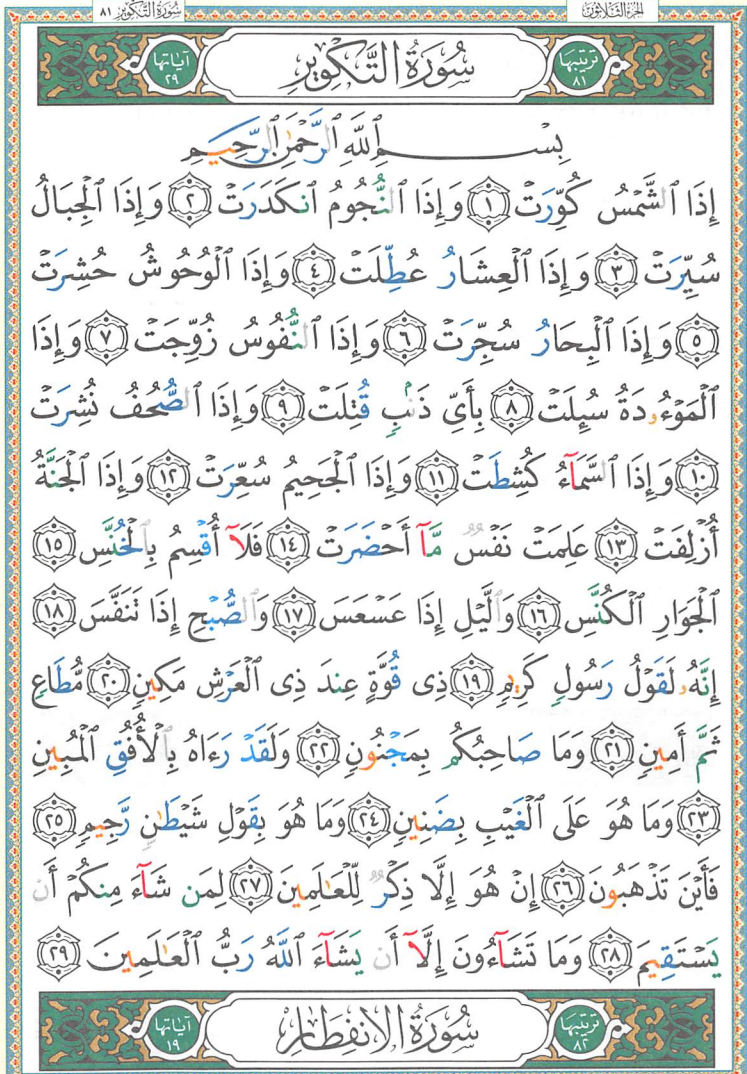 الجزء الثلاثون
سورة التكوير ٨١
ترتيبها ٨١
سُورَةُ التَّكْوِيرِ
آياتها ٢٩
بِسْمِ ٱللَّهِ ٱلرَّحْمَٰنِ ٱلرَّحِيمِ
إِذَا ٱلشَّمْسُ كُوِّرَتْ ١ وَإِذَا ٱلنُّجُومُ ٱنكَدَرَتْ ٢ وَإِذَا ٱلْجِبَالُ
سُيِّرَتْ ٣ وَإِذَا ٱلْعِشَارُ عُطِّلَتْ ٤ وَإِذَا ٱلْوُحُوشُ حُشِرَتْ
٥ وَإِذَا ٱلْبِحَارُ سُجِّرَتْ ٦ وَإِذَا ٱلنُّفُوسُ زُوِّجَتْ ٧ وَإِذَا
ٱلْمَوْءُۥدَةُ سُئِلَتْ ٨ بِأَىِّ ذَنۢبٍ قُتِلَتْ ٩ وَإِذَا ٱلصُّحُفُ نُشِرَتْ
١٠ وَإِذَا ٱلسَّمَآءُ كُشِطَتْ ١١ وَإِذَا ٱلْجَحِيمُ سُعِّرَتْ ١٢ وَإِذَا ٱلْجَنَّةُ
أُزْلِفَتْ ١٣ عَلِمَتْ نَفْسٌ مَّآ أَحْضَرَتْ ١٤ فَلَآ أُقْسِمُ بِٱلْخُنَّسِ ١٥
ٱلْجَوَارِ ٱلْكُنَّسِ ١٦ وَٱلَّيْلِ إِذَا عَسْعَسَ ١٧ وَٱلصُّبْحِ إِذَا تَنَفَّسَ ١٨
إِنَّهُۥ لَقَوْلُ رَسُولٍ كَرِيمٍ ١٩ ذِى قُوَّةٍ عِندَ ذِى ٱلْعَرْشِ مَكِينٍ ٢٠ مُّطَاعٍ
ثَمَّ أَمِينٍ ٢١ وَمَا صَاحِبُكُم بِمَجْنُونٍ ٢٢ وَلَقَدْ رَءَاهُ بِٱلْأُفُقِ ٱلْمُبِينِ
٢٣ وَمَا هُوَ عَلَى ٱلْغَيْبِ بِضَنِينٍ ٢٤ وَمَا هُوَ بِقَوْلِ شَيْطَٰنٍ رَّجِيمٍ ٢٥
فَأَيْنَ تَذْهَبُونَ ٢٦ إِنْ هُوَ إِلَّا ذِكْرٌ لِّلْعَٰلَمِينَ ٢٧ لِمَن شَآءَ مِنكُمْ أَن
يَسْتَقِيمَ ٢٨ وَمَا تَشَآءُونَ إِلَّآ أَن يَشَآءَ ٱللَّهُ رَبُّ ٱلْعَٰلَمِينَ ٢٩
ترتيبها ٨٢
سُورَةُ الانفِطَارِ
آياتها ١٩